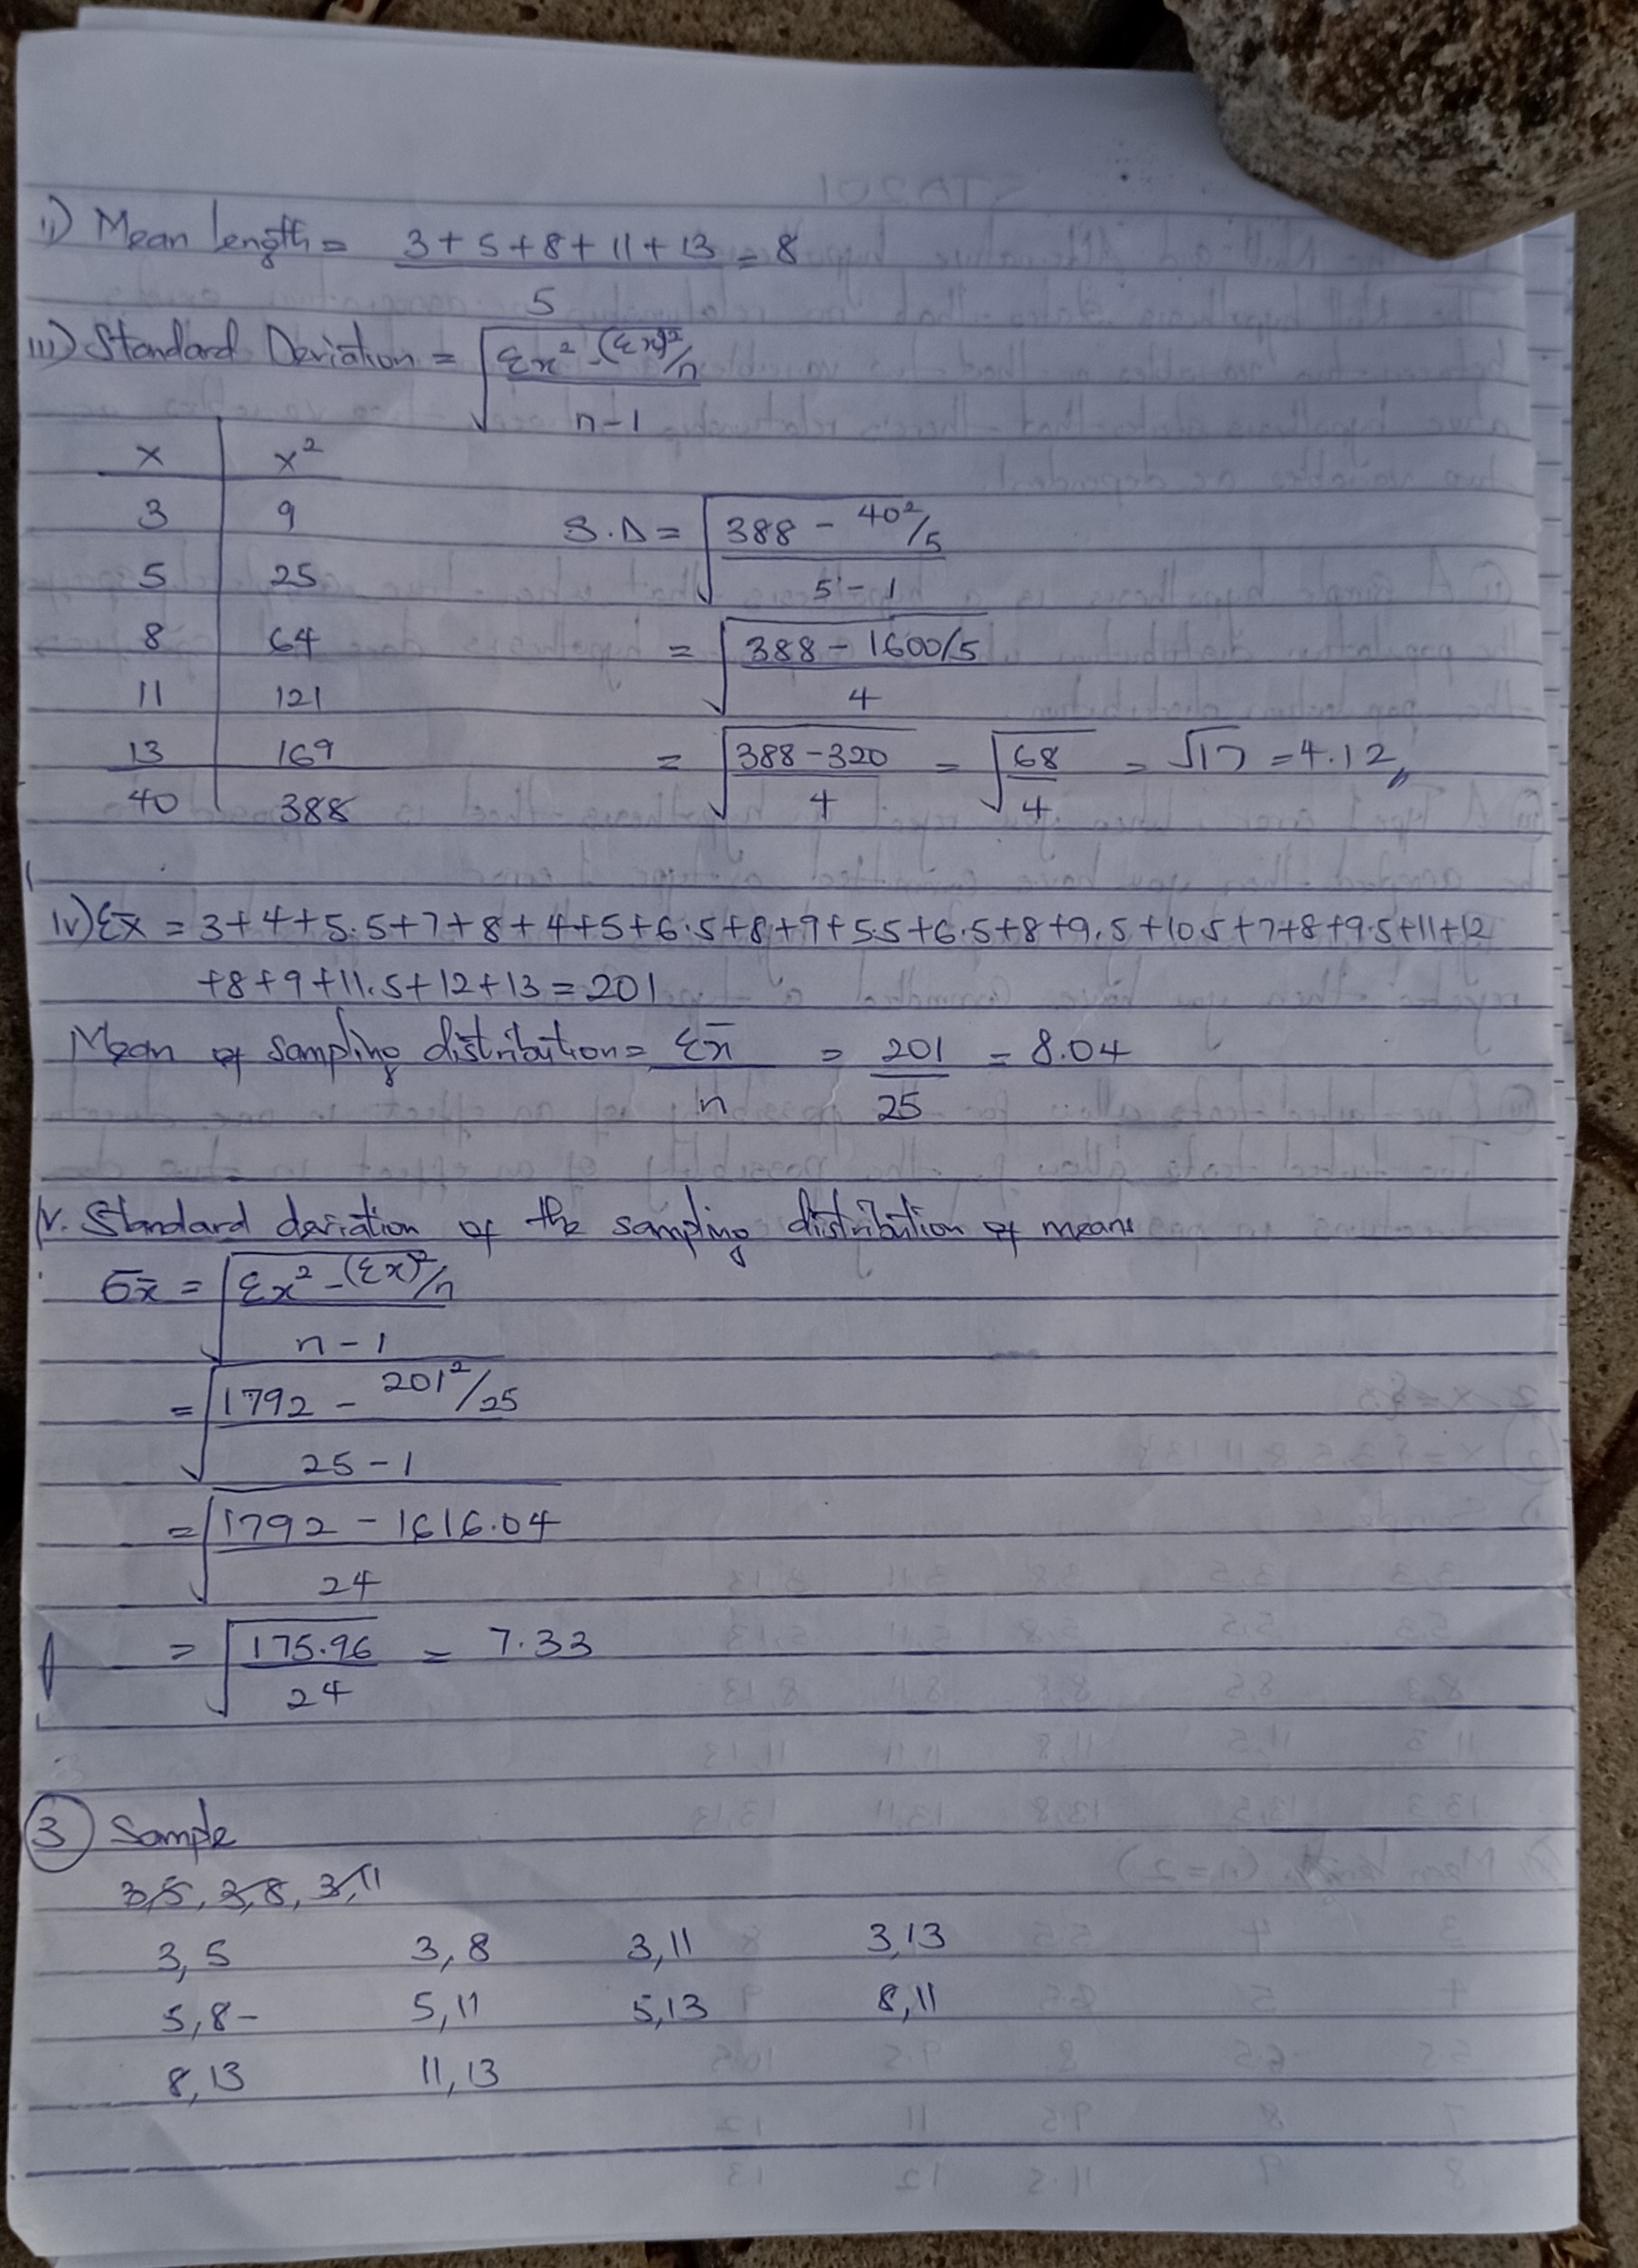 ii) Mean length = 3+5+8+11+13 = 8
5
iii) Standard Deviation = √ Σx² - (Σx)²/n
n-1
x x²
3 9 S.D = √ 388 - 40²/5
5 25 5-1
8 64 = √ 388 - 1600/5
11 121 4
13 169 = √ 388-320 = √ 68 = √17 = 4.12
40 388 4 4
iv) Σx̄ = 3+4+5.5+7+8+4+5+6.5+8+9+5.5+6.5+8+9.5+10.5+7+8+9.5+11+12
+8+9+11.5+12+13 = 201
Mean of sampling distribution = Σx̄ = 201 = 8.04
n 25
V. Standard deviation of the sampling distribution of means
σx̄ = √ Σx² - (Σx)²/n
n-1
= √ 1792 - 201²/25
25-1
= √ 1792 - 1616.04
24
= √ 175.96 = 7.33
24
3 Sample
3,5, 3,8, 3,11
3,5 3,8 3,11 3,13
5,8- 5,11 5,13 8,11
8,13 11,13